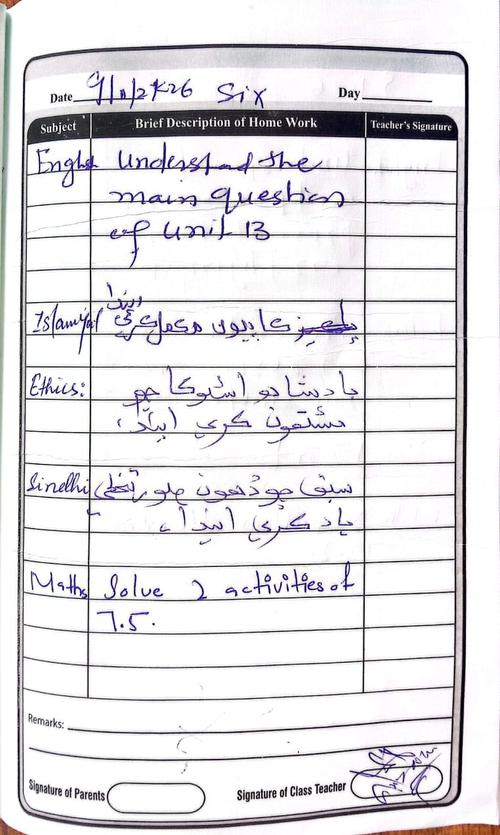 Date 9/1/2k26 Six Day
Subject Brief Description of Home Work Teacher's Signature
English Understand the
main question
of Unit 13
Islamiyat ڪاپيون مڪمل ڪري ايندا
Ethics: بادشاهه اشوڪا جو
مشقون ڪري اينداَ،
Sindhi سبق جو ڏهون
ياد ڪري ايندا،
Maths Solve 2 activities of
7.5.
Remarks:
Signature of Parents Signature of Class Teacher